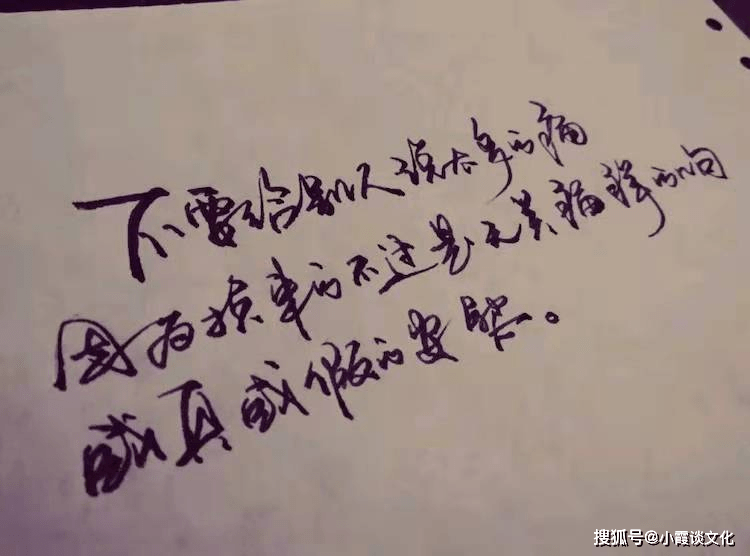 不要给别人说太多的痛
因为换来的不过是无关痛痒的问
或真或假的安慰。
搜狐号@小霞谈文化